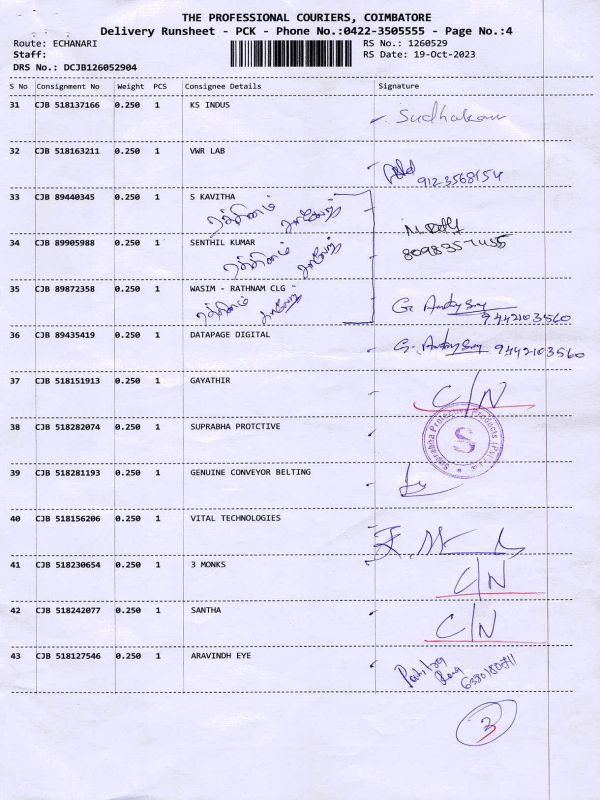 THE PROFESSIONAL COURIERS, COIMBATORE
Delivery Runsheet - PCK - Phone No.:0422-3505555 - Page No.:4
Route: ECHANARI RS No.: 1260529
Staff: RS Date: 19-Oct-2023
DRS No.: DCJB126052904
S No Consignment No Weight PCS Consignee Details Signature
31 CJB 518137166 0.250 1 KS INDUS Sudhakar
32 CJB 518163211 0.250 1 VWR LAB
33 CJB 89440345 0.250 1 S KAVITHA
34 CJB 89905988 0.250 1 SENTHIL KUMAR
35 CJB 89872358 0.250 1 WASIM - RATHNAM CLG 9442103560
36 CJB 89435419 0.250 1 DATAPAGE DIGITAL 9442103560
37 CJB 518151913 0.250 1 GAYATHIR C/N
38 CJB 518282074 0.250 1 SUPRABHA PROTCTIVE Suprabha Protective Products (P) Ltd S
39 CJB 518281193 0.250 1 GENUINE CONVEYOR BELTING
40 CJB 518156206 0.250 1 VITAL TECHNOLOGIES
41 CJB 518230654 0.250 1 3 MONKS C/N
42 CJB 518242077 0.250 1 SANTHA C/N
43 CJB 518127546 0.250 1 ARAVINDH EYE
3